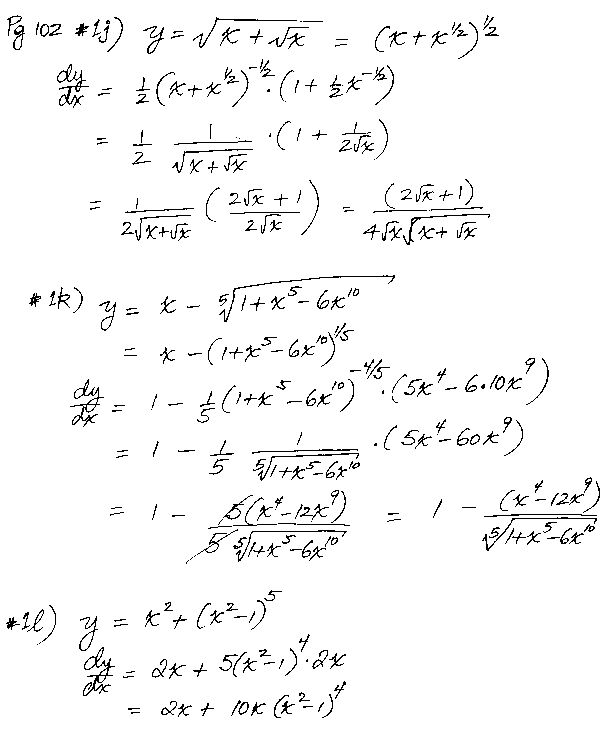 Pg 102 #1j) y = √(x + √x) = (x + x^(1/2))^(1/2)
dy/dx = 1/2 (x + x^(1/2))^(-1/2) · (1 + 1/2 x^(-1/2))
= 1/2 1/√(x + √x) · (1 + 1/(2√x))
= 1/(2√(x+√x)) ((2√x + 1)/(2√x)) = (2√x + 1)/(4√x √(x + √x))
#1k) y = x - ⁵√(1 + x^5 - 6x^10)
= x - (1 + x^5 - 6x^10)^(1/5)
dy/dx = 1 - 1/5 (1 + x^5 - 6x^10)^(-4/5) · (5x^4 - 6·10x^9)
= 1 - 1/5 1/⁵√(1 + x^5 - 6x^10) · (5x^4 - 60x^9)
= 1 - 5(x^4 - 12x^9)/(5 ⁵√(1 + x^5 - 6x^10)) = 1 - (x^4 - 12x^9)/⁵√(1 + x^5 - 6x^10)
#1l) y = x^2 + (x^2 - 1)^5
dy/dx = 2x + 5(x^2 - 1)^4 · 2x
= 2x + 10x (x^2 - 1)^4